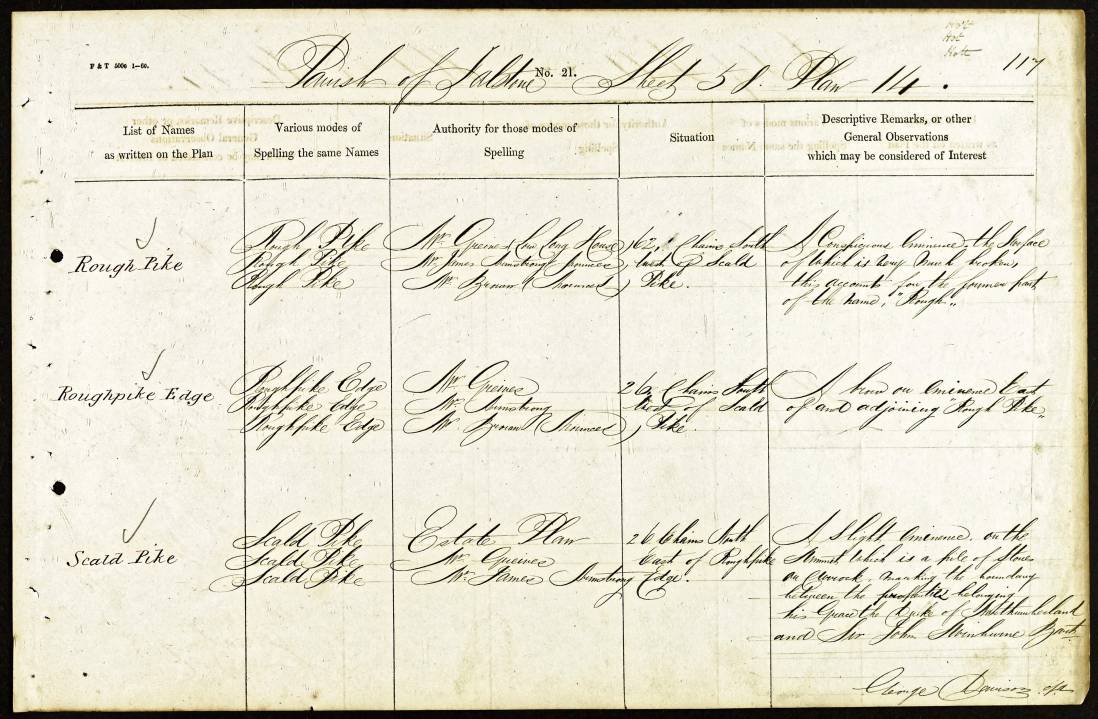 117
F & T 5006 1–60.
Parish of Falstone No. 21. Sheet 58. Plan 14.
List of Names
as written on the Plan
Various modes of
Spelling the same Names
Authority for those modes of
Spelling
Situation
Descriptive Remarks, or other
General Observations
which may be considered of Interest
Rough Pike
Rough Pike
Rough Pike
Rough Pike
Mr. Greener Low Long House
Mr. James Armstrong
Mr. Brown
62 Chains South
West of Scald
Pike.
A Conspicuous Eminence, the Surface
of which is very much broken,
this accounts for the former part
of the name, "Rough".
Roughpike Edge
Roughpike Edge
Roughpike Edge
Roughpike Edge
Mr. Greener
Mr. Armstrong
Mr. Brown
Chains South
West of Scald
Pike
A brow or Eminence East
of and adjoining "Rough Pike"
Scald Pike
Scald Pike
Scald Pike
Scald Pike
Estate Plan
Mr. Greener
Mr. James Armstrong
26 Chains North
East of Roughpike
Edge.
A Slight Eminence on the
Summit which is a pile of Stones
or Currock, marking the boundary
between the properties belonging
his Grace the Duke of Northumberland
and Sir John Swinburne Bart.
George Davison